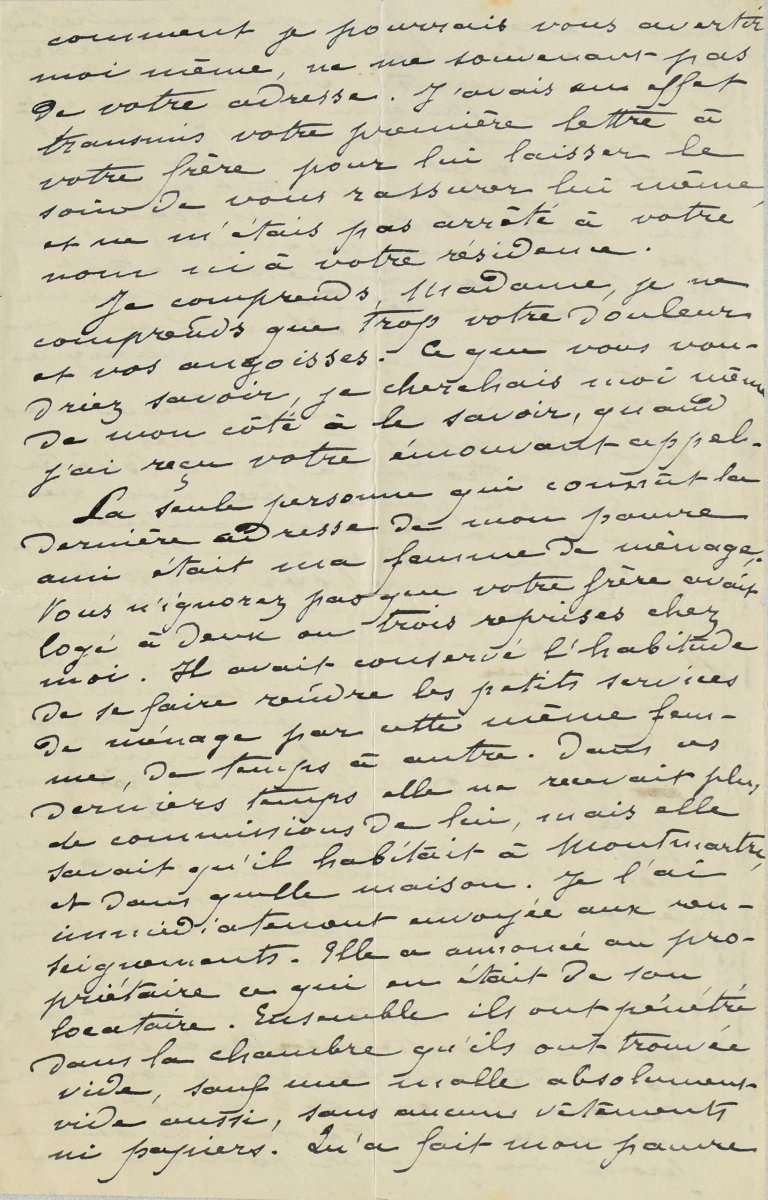 comment je pourrais vous avertir
moi même, ne me souvenant pas
de votre adresse. J'avais en effet
transmis votre première lettre à
votre frère pour lui laisser le
soin de vous rassurer lui même,
et ne m'étais pas arrêté à votre
nom ni à votre résidence.
Je comprends, Madame, je ne
comprends que trop votre douleur
et vos angoisses. Ce que vous vou-
driez savoir, je cherchais moi même
de mon côté à le savoir, quand
j'ai reçu votre émouvant appel.
La seule personne qui connût la
dernière adresse de mon pauvre
ami était ma femme de ménage.
Vous n'ignorez pas que votre frère avait
logé à deux ou trois reprises chez
moi. Il avait conservé l'habitude
de se faire rendre les petits services
de ménage par cette même fem-
me, de temps à autre. Dans ces
derniers temps elle ne recevait plus
de commissions de lui, mais elle
savait qu'il habitait à Montmartre,
et dans quelle maison. Je l'ai
immédiatement envoyée aux ren-
seignements. Elle a annoncé au pro-
priétaire ce qui en était de son
locataire. Ensemble ils ont pénétré
dans la chambre qu'ils ont trouvée
vide, sauf une malle absolument
vide aussi, sans aucuns vêtements
ni papiers. Qu'a fait mon pauvre